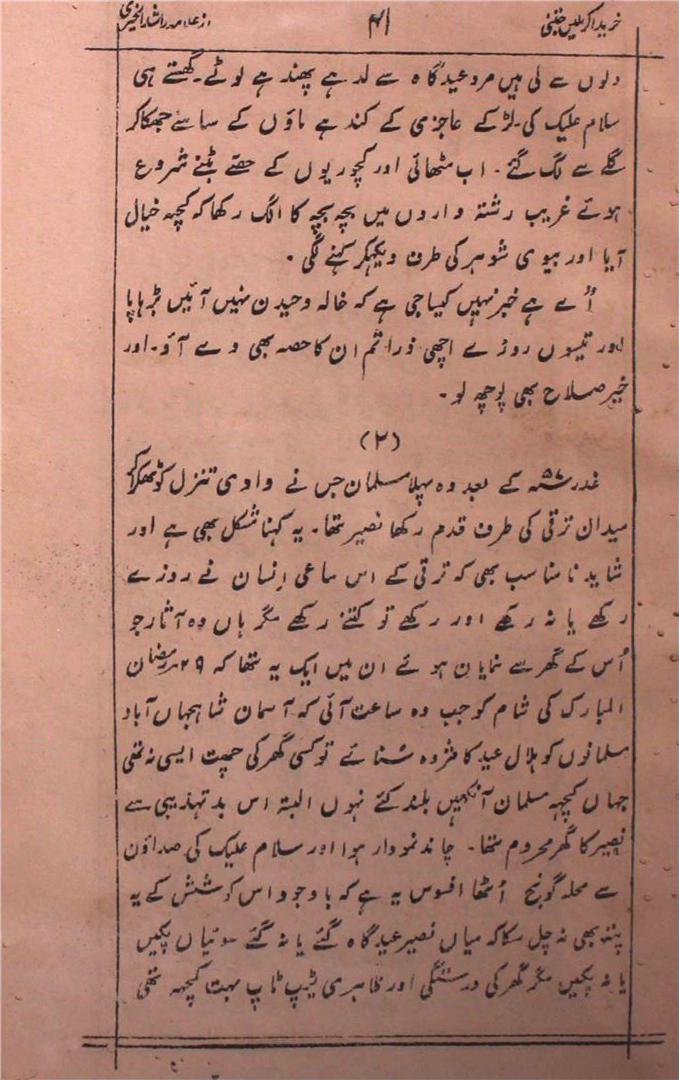 خریدا کر یلیس جتنی ۴۱ از علامہ راشد الخیری
دلوں سے لی ہیں مرد عیدگاہ سے لدے پھندے لوٹے۔ گھستے ہی
سلام علیک کی۔ لڑکے عاجزی کے کندھے ماؤں کے سامنے جھکا کر
گلے سے لگ گئے۔ اب مٹھائی اور کچوریوں کے حصے بٹنے شروع
ہوئے غریب رشتہ داروں میں بچہ بچہ کا الگ رکھا کہ کچہہ خیال
آیا اور بیوی شوہر کی طرف دیکہکر کہنے لگی۔
اُے ہے خبر نہیں کیا جی ہے کہ خالہ وحیدن نہیں آئیں بڑہاپا
اور تیسوں روزے اچھی ذرا تم ان کا حصہ بھی دے آؤ۔ اور
خیر صلاح بھی پوچھہ لو۔
(۲)
غدر ۵۷ء کے بعد وہ پہلا مسلمان جس نے وادی تنزل کو ٹھکرا کر
میدان ترقی کی طرف قدم رکھا نصیر تھا۔ یہ کہنا مشکل بھی ہے اور
شاید نامناسب بھی کہ ترقی کے اس ساعی انسان نے روزے
رکھے یا نہ رکھے اور رکھے تو کتنے رکھے مگر ہاں وہ آثار جو
اُس کے گھر سے نمایان ہوئے ان میں ایک یہ تھا کہ ۲۹ رمضان
المبارک کی شام کو جب وہ ساعت آئی کہ آسمان شاہجہاں آباد
مسلمانوں کو ہلال عید کا مژدہ سُنائے تو کسی گھر کی چھت ایسی نہ تھی
جہاں کچہہ مسلمان آنکھیں بلند کئے نہوں البتہ اس بدتہذیبی سے
نصیر کا گھر محروم تھا۔ چاند نمودار ہوا اور سلام علیک کی صداؤں
سے محلہ گونج اُٹھا افسوس یہ ہے کہ باوجود اس کوشش کے یہ
پتہ بھی نہ چل سکا کہ میاں نصیر عیدگاہ گئے یا نہ گئے سوئیاں پکیں
یا نہ پکیں مگر گھر کی درستگی اور ظاہری ٹیپ ٹاپ بہت کچہہ تھی